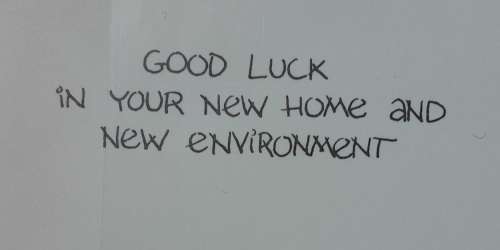 GOOD LUCK
iN YOUR NeW HOMe aND
NeW eNViRONMeNT